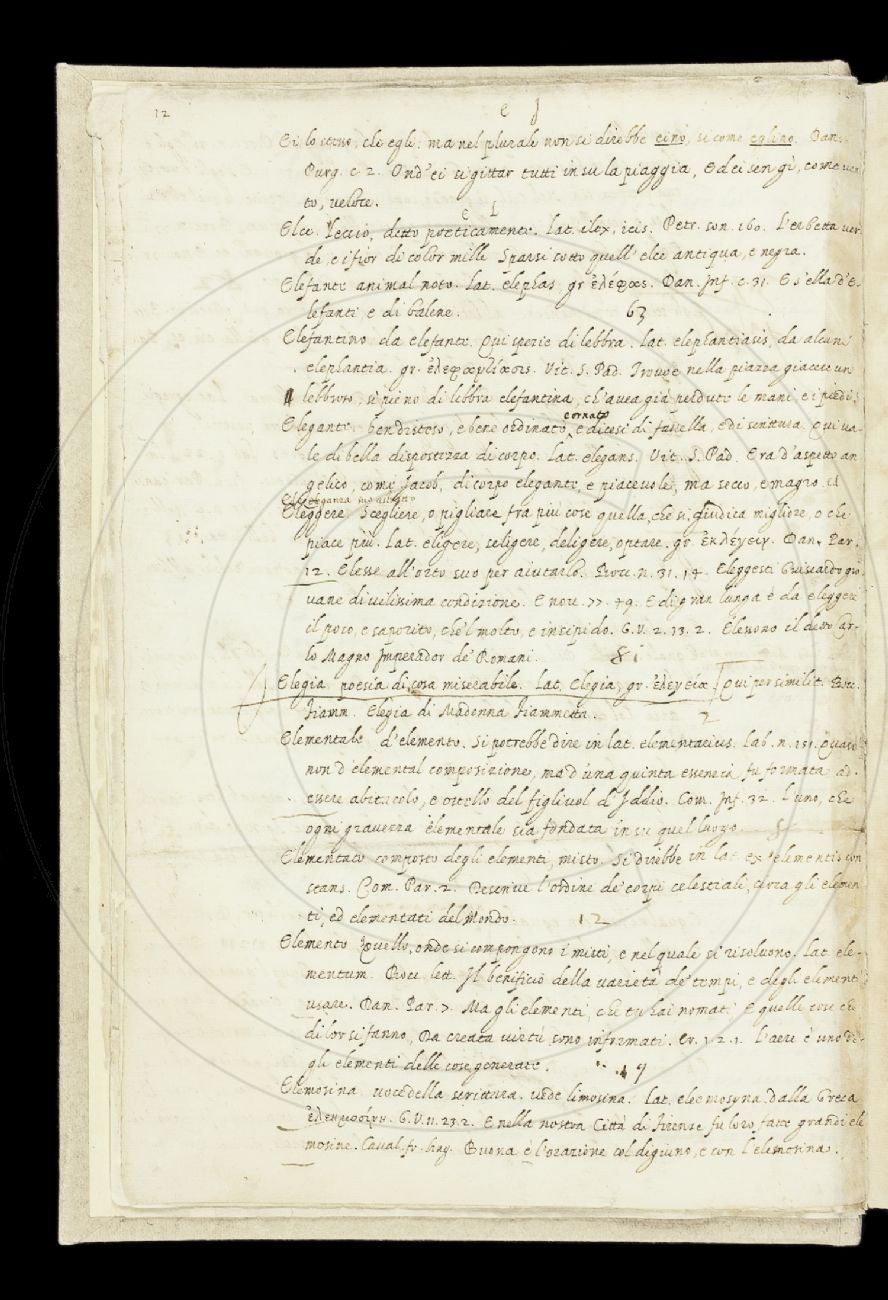 12
E I
Ei lo stesso, che egli: ma nel plurale non si direbbe eino, si come eglino. Dan.
Purg. c. 2. Ond'ei si gittar tutti in su la piaggia, Ed ei sen gì, come ven
to, veloce.
E L
Elce. Leccio, detto poeticamente. Lat. ilex, icis. Petr. son. 160. L'erbetta ver
de, e i fior di color mille Sparsi sotto quell'elce antiqua, e negra.
Elefante animal noto. Lat. elephas gr ἐλέφας. Dan. Inf. c. 31. E s'ella d'e-
lefanti e di balene. 63
Elefantino da elefante. Qui spezie di lebbra. Lat. elephantiasis, da alcuni
elephantia. gr. ἐλεφαντίασις. Vit. S. Pad. Trovò nella piazza giacere un
lebbroso, sì pieno di lebbra elefantina, ch'avea già perduto le mani, e i piedi.
Elegante. ben disposo, e bene ordinato, e dicesi di favella, e di scrittura. Qui va-
e ornato
le di bella dispostezza di corpo. Lat. elegans. Vit. S. Pad. Era d'aspetto an
gelico, come Jacob, di corpo elegante, e piacevole, ma secco, e magro.
Eleganza suo
Eleggere Scegliere, o pigliare fra più cose quella, che si giudica migliore, o che
piace più. Lat. eligere, seligere, deligere, optare. gr. ἐκλεγειν. Dan. Par.
12. Elesse all'orto suo per aiutarlo. Bocc. n. 31. 14. Eleggesti Guiscardo gio
vane di vilissima condizione. E nov. 77. 49. E di gran lunga è da eleggere
il poco, e saporito, che'l molto, e insipido. G. V. 2. 13. 2. Elessono il detto Car-
lo Magno Imperador de' Romani. 81
Elegia poesia di cosa miserabile. Lat. Elegia, gr. ἐλεγεία. Qui per similit. Bocc.
Fiamm. Elegia di Madonna Fiammetta. 2
Elementale d'elemento. Si potrebbe dire in lat. elementacius. Lab. n. 151. Quasi
non d'elemental composizione, ma d'una quinta essenzia fu formata ad
essere abitacolo, e ostello del figliuol d'Iddio. Com. Inf. 32. L'uno, che
ogni gravezza elementale sia fondata in su quel luogo. 5
Elementato composto degli elementi, misto. Si direbbe in lat. ex elementis con
stans. Com. Par. 2. Descrive l'ordine de' corpi celestiali, circa gli elemen
ti, ed elementati del Mondo. 12
Elemento Quello, onde si compongono i misti, e nel quale si risolvono. Lat. ele-
mentum. Bocc. lett. Il benificio della varietà de' tempi, e degli elementi
usare. Dan. Par. 7. Ma gli elementi, che tu hai nomati E quelle cose che
di lor si fanno, Da creata virtù sono informati. Cr. 1. 2. 1. L'aere è uno de-
gli elementi delle cose generate. 49
Elemosina voce della scrittura. vede limosina. Lat. eleemosyna dalla Greca
ἐλεημοσύνη. G. V. 11. 23. 2. E nella nostra Città di Firenze fu loro fatte grandi ele
mosine. Caval. fr. ling. Buona è l'orazione col digiuno, e con l'elemosina.